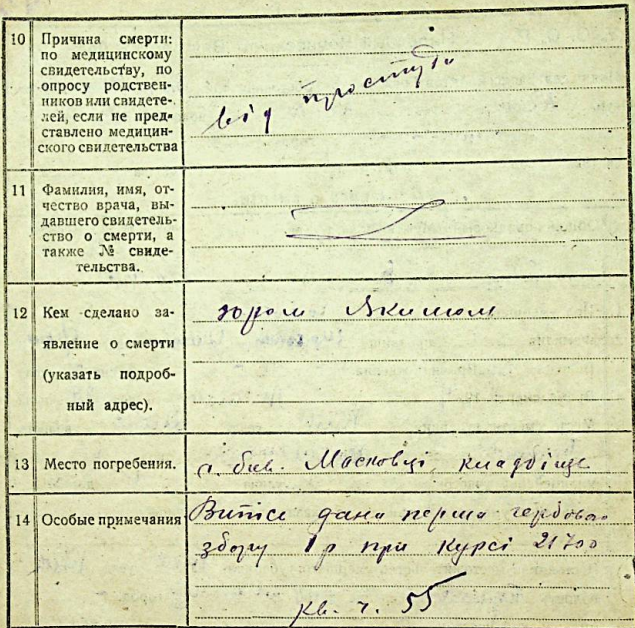 10 Причина смерти:
по медицинскому
свидетельству, по
опросу родствен-
ников или свидете-
лей, если не пред-
ставлено медицин-
ского свидетельства
від простуди
11 Фамилия, имя, от-
чество врача, вы-
давшего свидетель-
ство о смерти, а
также № свиде-
тельства.
12 Кем сделано за-
явление о смерти
(указать подроб-
ный адрес).
Якимом
13 Место погребения.
Масковці кладбіще
14 Особые примечания
дана перша гербово
збору 1 р при курсі 21700
кв. ч. 55